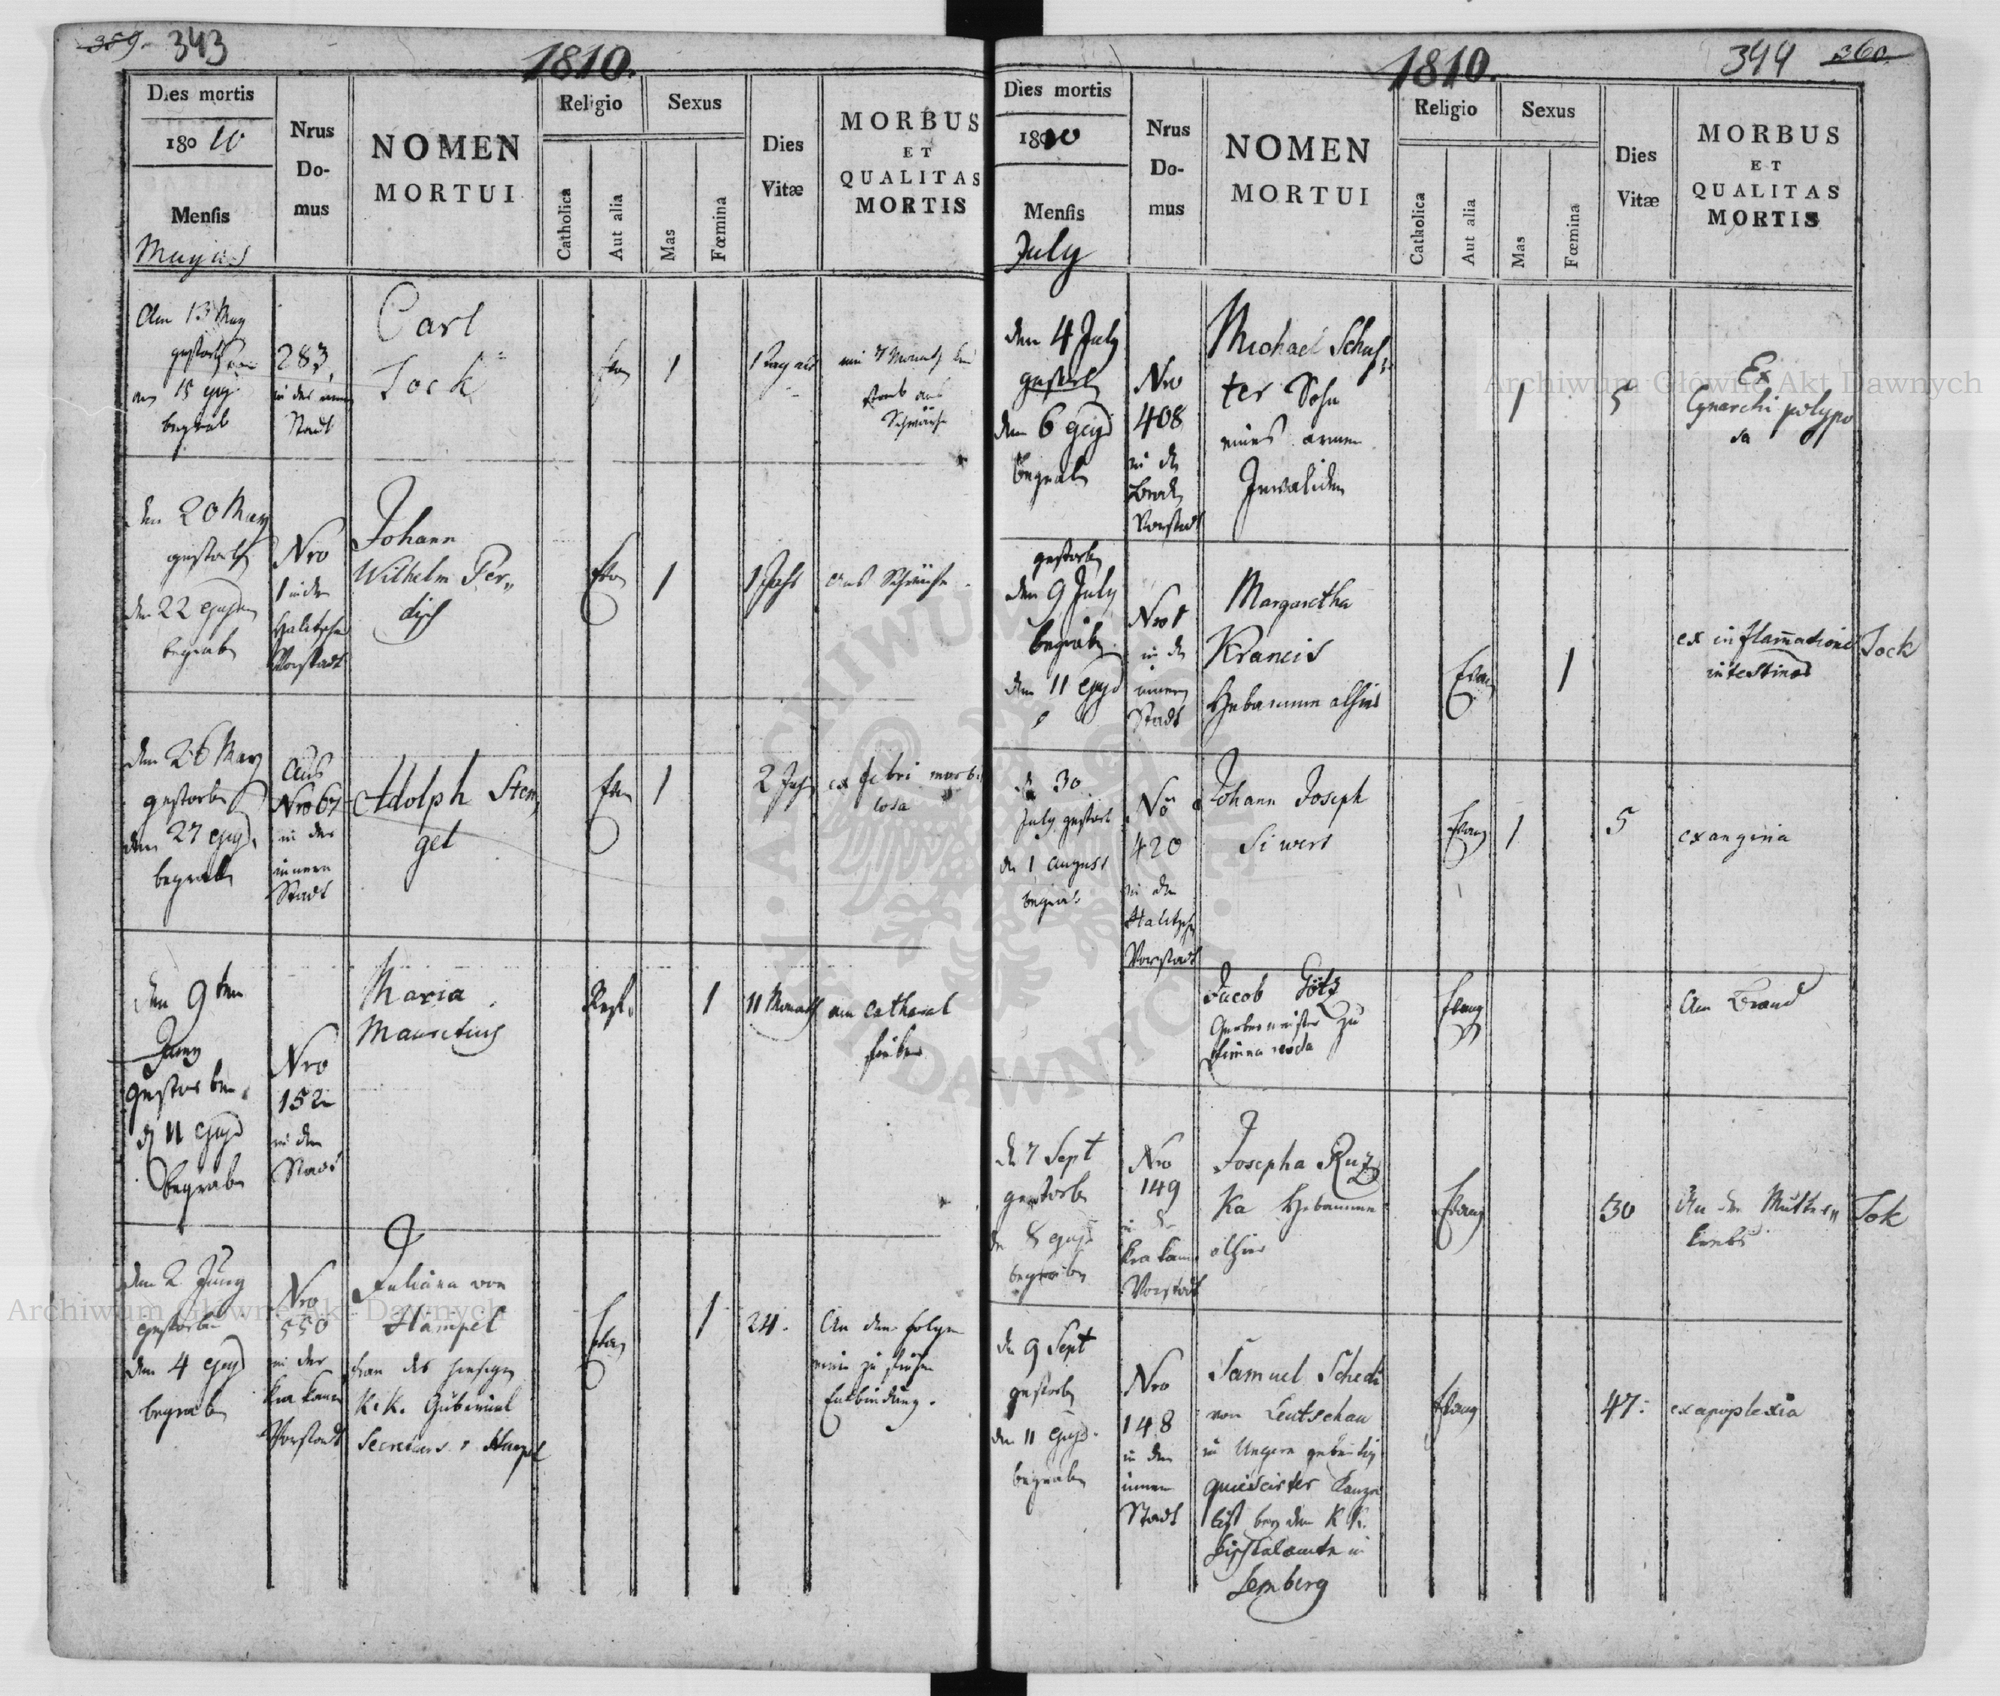 359. 343
1810.
Dies mortis
1810
Mensis
Mayus
Nrus
Do-
mus
NOMEN
MORTUI
Religio
Catholica
Aut alia
Sexus
Mas
Fœmina
Dies
Vitæ
MORBUS
ET
QUALITAS
MORTIS
Am 13 May
gestorben
am 15 ejus
begrab
283,
in der innern
Stadt
Carl
Tock
Evan
1
1 Tag alt
aus
Schwäche
den 20 May
gestorben
den 22 ejusdem
begraben
Nro
1 in der
Halitscher
Vorstadt
Johann
Wilhelm Per„
disch
Evan
1
1 Jahr
aus Schwäche
den 26 May
gestorben
den 27 ejusd.
begraben
Aus
Nro 67
in der
innern
Stadt
Adolph Sten„
gel
Evan
1
2 Jahr
ex febri morbil
losa
den 9ten
Juny
gestorben.
d 11 ejusd
begraben
Nro
152
in der
Stadt
Maria
Mauretius
Ref.
1
11 Monath
am Catharal
fieber
den 2 Juny
gestorben
den 4 ejusd
begraben
Nro
550
in der
Krakauer
Vorstadt
Juliana von
Hampel
Frau des hiesigen
K. K. Gubernial
Secretärs v Hampel
Evan
1
24.
An den folgen
einer zu frühen
Entbindung.
344 360
1810.
Dies mortis
1810
Mensis
July
Nrus
Do-
mus
NOMEN
MORTUI
Religio
Catholica
Aut alia
Sexus
Mas
Fœmina
Dies
Vitæ
MORBUS
ET
QUALITAS
MORTIS
den 4 July
gestorben
den 6 ejusd
begraben
Nro
408
in der
Brod
Vorstadt
Michael Schus„
ter Sohn
eines armen
Invaliden
1
5
Ex
polypo
sa
gestorben
den 9 July
begraben
den 11 ejusd
Nro 1
in der
innern
Stadt
Margaretha
Krancis
Hebamme allhier
Evang
1
ex inflamatione
intestinor
Tock
den 30
July gestorb
den 1 August
begrab
No
420
in der
Halitscher
Vorstadt
Johann Joseph
Siwers
Evang
1
5
ex angina
Jacob Götz
Gerbermeister zu
Evang
Am Brand
d 7 Sept
gestorben
den 8 ejusd
begraben
Nro
149
in der
Krakauer
Vorstadt
Josepha Ruz
ka Hebamme
allhier
Evang
30
An der Mutter„
krebs
Tok
den 9 Sept
gestorben
den 11 ejusd.
begraben
Nro
148
in der
innern
Stadt
Samuel Schedi
von Leutschau
in Ungern gebürtig
quiescirter Kanze
list bey dem K. K.
in
Lemberg
Evang
47.
ex apoplexia
Archiwum Główne Akt Dawnych
Archiwum Główne Akt Dawnych